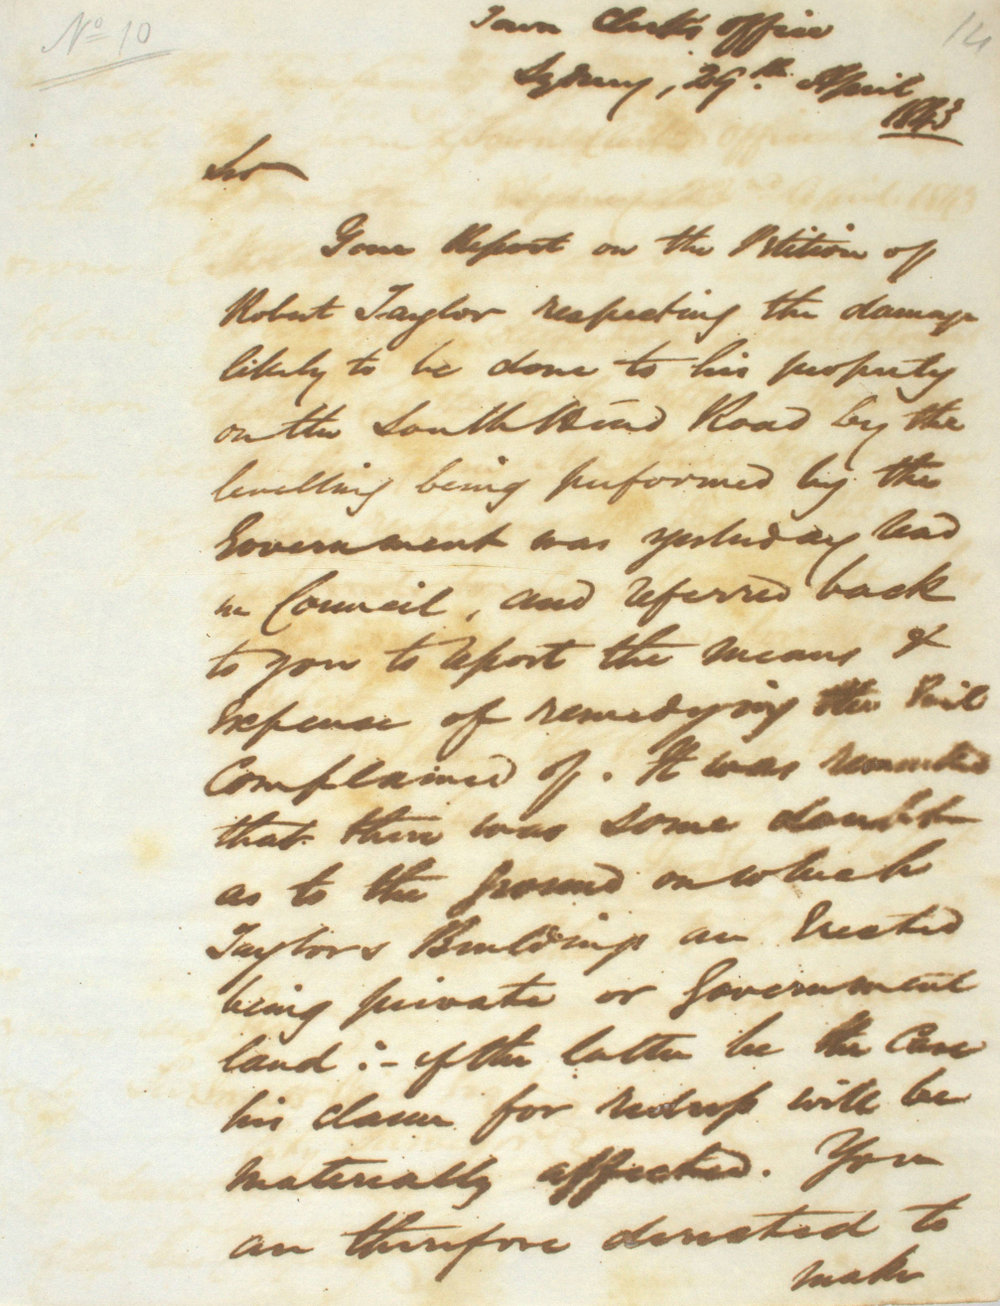 No 10
14
Town Clerk's Office
Sydney, 29th April
1843
Sir
Your Report on the Petition of
Robert Taylor respecting the damage
likely to be done to his property
on the South Head Road by the
levelling being performed by the
Government was yesterday read
in Council, and referred back
to you to report the means &
Expense of remedying the Evil
Complained of. It was remarked
that there was some doubt
as to the ground on which
Taylors Buildings are Erected
being private or Government
land :- if the latter be the Case
his claim for redress will be
materially affected. You
are therefore directed to
make